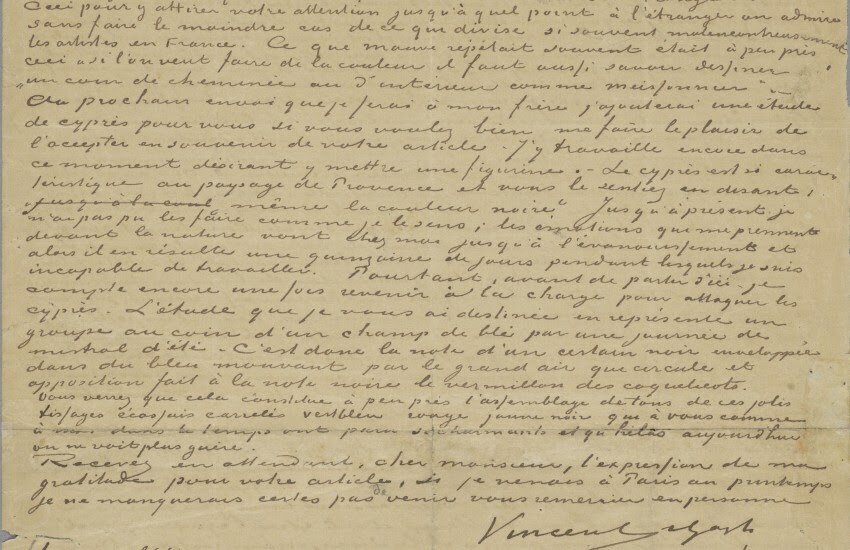 Ceci pour y attirer votre attention jusqu'à quel point à l'étranger on admire
sans faire le moindre cas de ce qui divise si souvent malencontreusement
les artistes en France. Ce que Mauve répétait souvent était à peu près
ceci „si l'on veut faire de la couleur il faut aussi savoir dessiner
un coin de cheminée ou d'intérieur comme meissonier"
Au prochain envoi que je ferai à mon frère j'ajouterai une étude
de cyprès pour vous si vous voulez bien me faire le plaisir de
l'accepter en souvenir de votre article. J'y travaille encore dans
ce moment désirant y mettre une figurine. – Le cyprès est si carac-
téristique au paysage de Provence et vous le sentiez en disant:
„jusqu'à la coul même la couleur noire". Jusqu'à présent je
n'ai pas pu les faire comme je le sens; les émotions que me prennent
devant la nature vont chez moi jusqu'à l'évanouissement et
alors il en résulte une quinzaine de jours pendant lesquels je suis
incapable de travailler. Pourtant, avant de partir d'ici, je
compte encore une fois revenir à la charge pour attaquer les
cyprès. L'étude que je vous ai destinée en représente un
groupe au coin d'un champ de blé par une journée de
mistral d'été – C'est donc la note d'un certain noir enveloppée
dans du bleu mouvant par le grand air qui circule et
opposition fait à la note noire le vermillon des coquelicots.
Vous verrez que cela constitue à peu près l'assemblage de tons de ces jolis
tissages écossais carrelés vert bleu rouge jaune noir qui à vous comme
à moi dans le temps ont paru si charmants et qu'hélas aujourd'hui
on ne voit plus guère.
Recevez en attendant, cher monsieur, l'expression de ma
gratitude pour votre article, si je venais à Paris au printemps
je ne manquerais certes pas venir vous remercier en personne
Vincent v Gogh